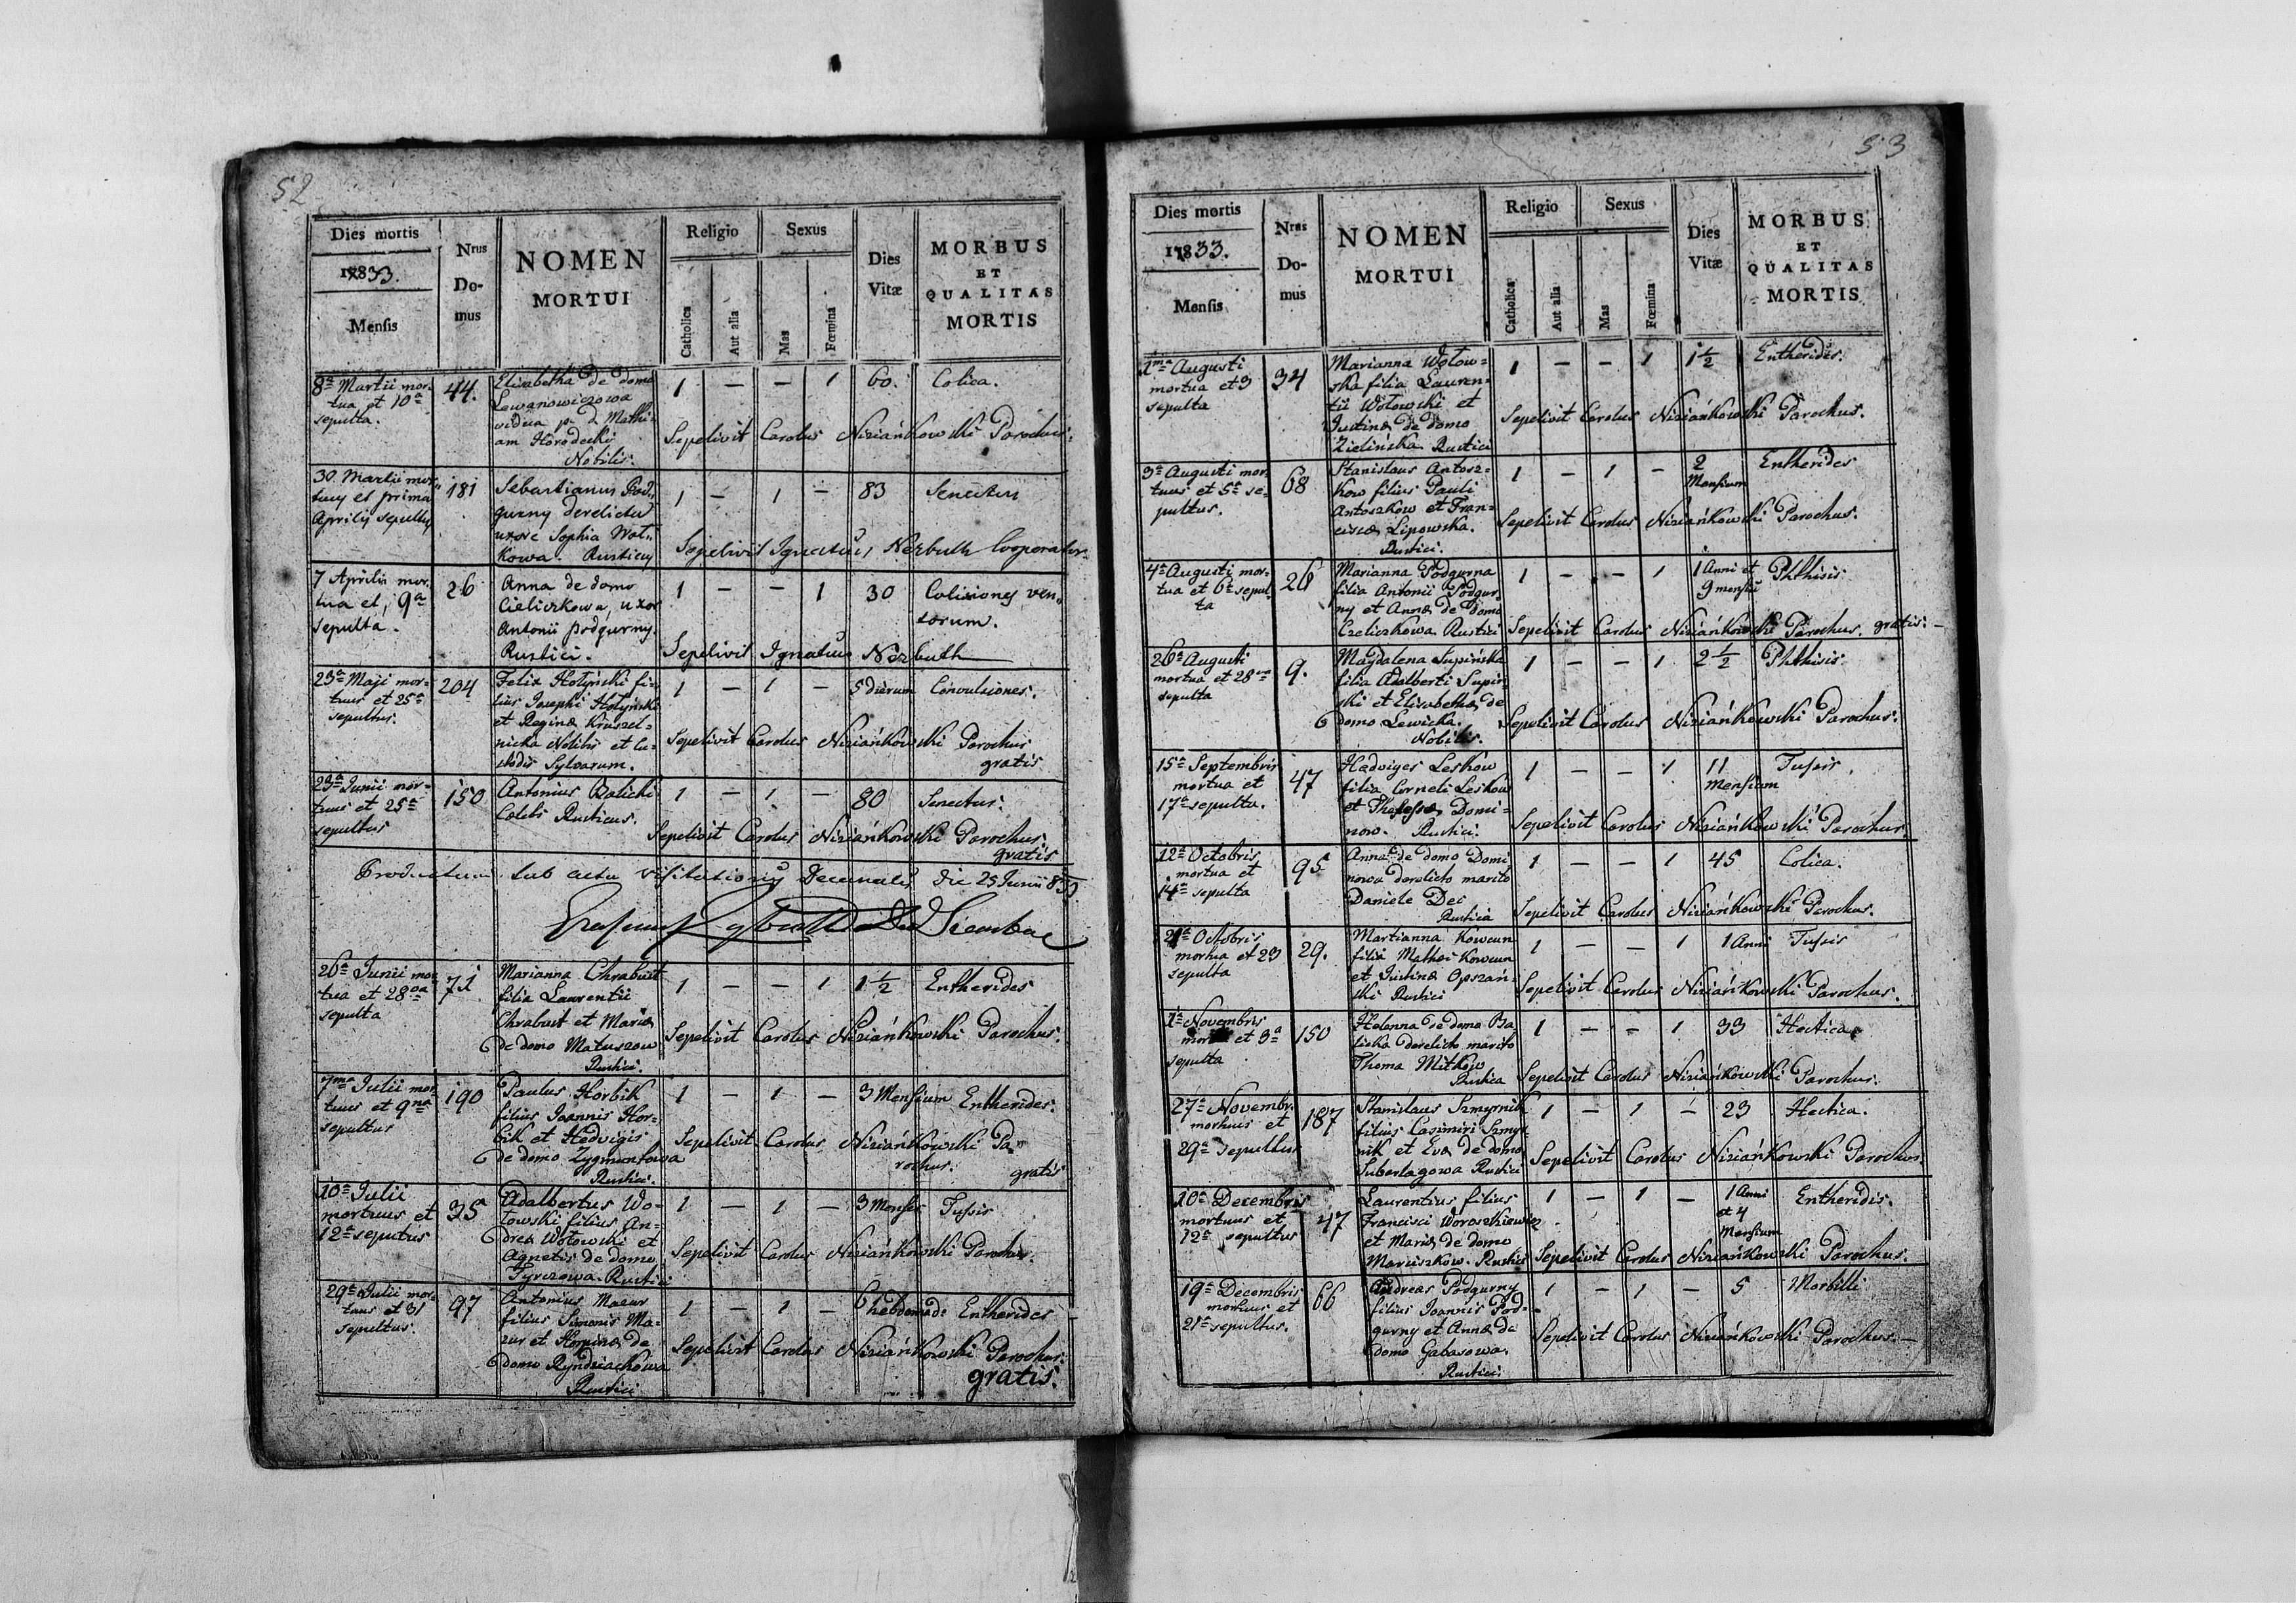 52
Dies mortis
1833.
Mensis
Nrus
Do-
mus
NOMEN
MORTUI
Religio
Catholica
Aut alia
Sexus
Mas
Fœmina
Dies
Vitæ
MORBUS
ET
QUALITAS
MORTIS
8a Martii mor-
tua et 10a
sepulta.
44.
Elisabetha de domo
Lewanowiczowa
vidua p. d. Mathi-
am Horodecki
Nobilis.
1 — — 1 60. Colica.
Sepelivit Carolus Niziańkowski Parochus.
30 Martii mor-
tuus et prima
Aprilis sepultus
181
Sebastianus Pod-
gurny derelicta
uxore Sophia Wot-
kowa. Rusticus
1 — 1 — 83 Senectus
Sepelivit Ignatius Nezbuth Cooperator.
7 Aprilis mor-
tua et 9a
sepulta.
26
Anna de domo
Cieliczkowa, uxor
Antonii Podgurny.
Rustici.
1 — — 1 30 Colisiones ven-
torum.
Sepelivit Ignatius Nezbuth
23a Maji mor-
tuus et 25a
sepultus.
204
Felix Hołyński fi-
lius Josephi Hołyński
et Reginæ Kruszel-
nicka Nobilis et Cu-
stodis Sylvarum.
1 — 1 — 5 dierum Convulsiones.
Sepelivit Carolus Niziańkowski Parochus
gratis
23a Junii mor-
tuus et 25a
sepultus
150
Antonius Balicki
Cælebs Rusticus.
1 — 1 — 80 Senectus.
Sepelivit Carolus Niziańkowski Parochus
gratis
Productum sub actu visitationis Decanalis die 25 Junii 833
26a Junii mor-
tua et 28va
sepulta
71
Marianna Chrabust
filia Laurentii
Chrabust et Mariæ
de domo Matuszow
Rustici.
1 — — 1 1½ Entherides
Sepelivit Carolus Niziańkowski Parochus.
7ma Julii mor-
tuus et 9na
sepultus
190
Paulus Horbik
filius Joannis Hor-
bik et Hedvigis
de domo Zygmuntowa
Rustici.
1 — 1 — 3 Mensium Entherides.
Sepelivit Carolus Niziańkowski Pa-
rochus.
gratis
10a Julii
mortuus et
12a seputus
35
Adalbertus Wo-
łowski filius An-
drea Wołowski et
Agnetis de domo
Tyrczowa. Rustici
1 — 1 — 3 Menses Tussis
Sepelivit Carolus Niziańkowski Parochus.
29a Julii mor-
tuus et 31
sepultus.
97
Antonius Mazur
filius Simonis Ma-
zur et Horpinæ de
domo Ryndziachowa
Rustici
1 — 1 — 6 hebdomad: Entherides
Sepelivit Carolus Niziańkowski Parochus.
gratis.
53
Dies mortis
1833.
Mensis
Nrus
Do-
mus
NOMEN
MORTUI
Religio
Catholica
Aut alia
Sexus
Mas
Fœmina
Dies
Vitæ
MORBUS
ET
QUALITAS
MORTIS
1ma Augusti
mortua et 3
sepulta
34
Marianna Wołow-
ska filia Lauren-
tii Wołowski et
Justinæ de domo
Zielińska Rustici
1 — — 1 1½ Entherides.
Sepelivit Carolus Niziańkowski Parochus.
3a Augusti mor-
tuus et 5a se-
pultus.
68
Stanislaus Antosz-
kow filius Pauli
Antoszkow et Fran-
ciscæ Lipowska.
Rustici.
1 — 1 — 2
Mensium
Entherides
Sepelivit Carolus Niziańkowski Parochus.
4a Augusti mor-
tua et 6a sepul-
ta
26
Marianna Podgurna
filia Antonii Podgur-
ny et Annæ de domo
Czeliczkowa Rustici
1 — — 1 1 Anni et
9 mensiu
Phthisis
Sepelivit Carolus Niziańkowski Parochus. gratis.
26a Augusti
mortua et 28va
sepulta
9.
Magdalena Supińska
filia Adalberti Supiń-
ski et Elisabethæ de
domo Lewicka.
Nobilis.
1 — — 1 2½ Phthisis.
Sepelivit Carolus Niziańkowski Parochus.
15a Septembris
mortua et
17a sepulta.
47
Hadviges Leskow
filia Corneli Leskow
et Theressæ Domi-
now. Rustici.
1 — — 1 11
Mensium
Tussis.
Sepelivit Carolus Niziańkowski Parochus.
12a Octobris
mortua et
14a sepulta
95
Anna de domo Domi-
nowa derelicto marito
Daniele Dec
Rustica
1 — — 1 45 Colica.
Sepelivit Carolus Niziańkowski Parochus.
21a Octobris
mortua et 23
sepulta
29.
Martianna Kowcun
filia Mathei Kowcun
et Justinæ Opszań-
ski Rustici
1 — — 1 1 Anni Tussis
Sepelivit Carolus Niziańkowski Parochus.
1a Novembris
et 3a
sepulta
150
Helenna de domo Ba-
licka derelicto marito
Thoma Mitkow
Rustica
1 — — 1 33 Hectica
Sepelivit Carolus Niziańkowski Parochus.
27a Novembr.
mortuus et
29a sepultus
187
Stanislaus Szmyrnik
filius Casimiri Szmyr-
nik et Evæ de domo
Suberlagowa Rustici
1 — 1 — 23 Hectica.
Sepelivit Carolus Niziańkowski Parochus.
10a Decembris
mortuus et
12a sepultus
47
Laurentius filius
Francisci Woroszkiewicz
et Mariæ de domo
Mariuszkow. Rustici
1 — 1 — 1 Anni
et 4
Mensium
Entheridis.
Sepelivit Carolus Niziańkowski Parochus.
19a Decembris
mortuus et
21a sepultus.
66
Andreas Podgurny
filius Joannis Pod-
gurny et Annæ de
domo Gabasowa.
Rustici.
1 — 1 — 5 Morbilli
Sepelivit Carolus Niziańkowski Parochus.